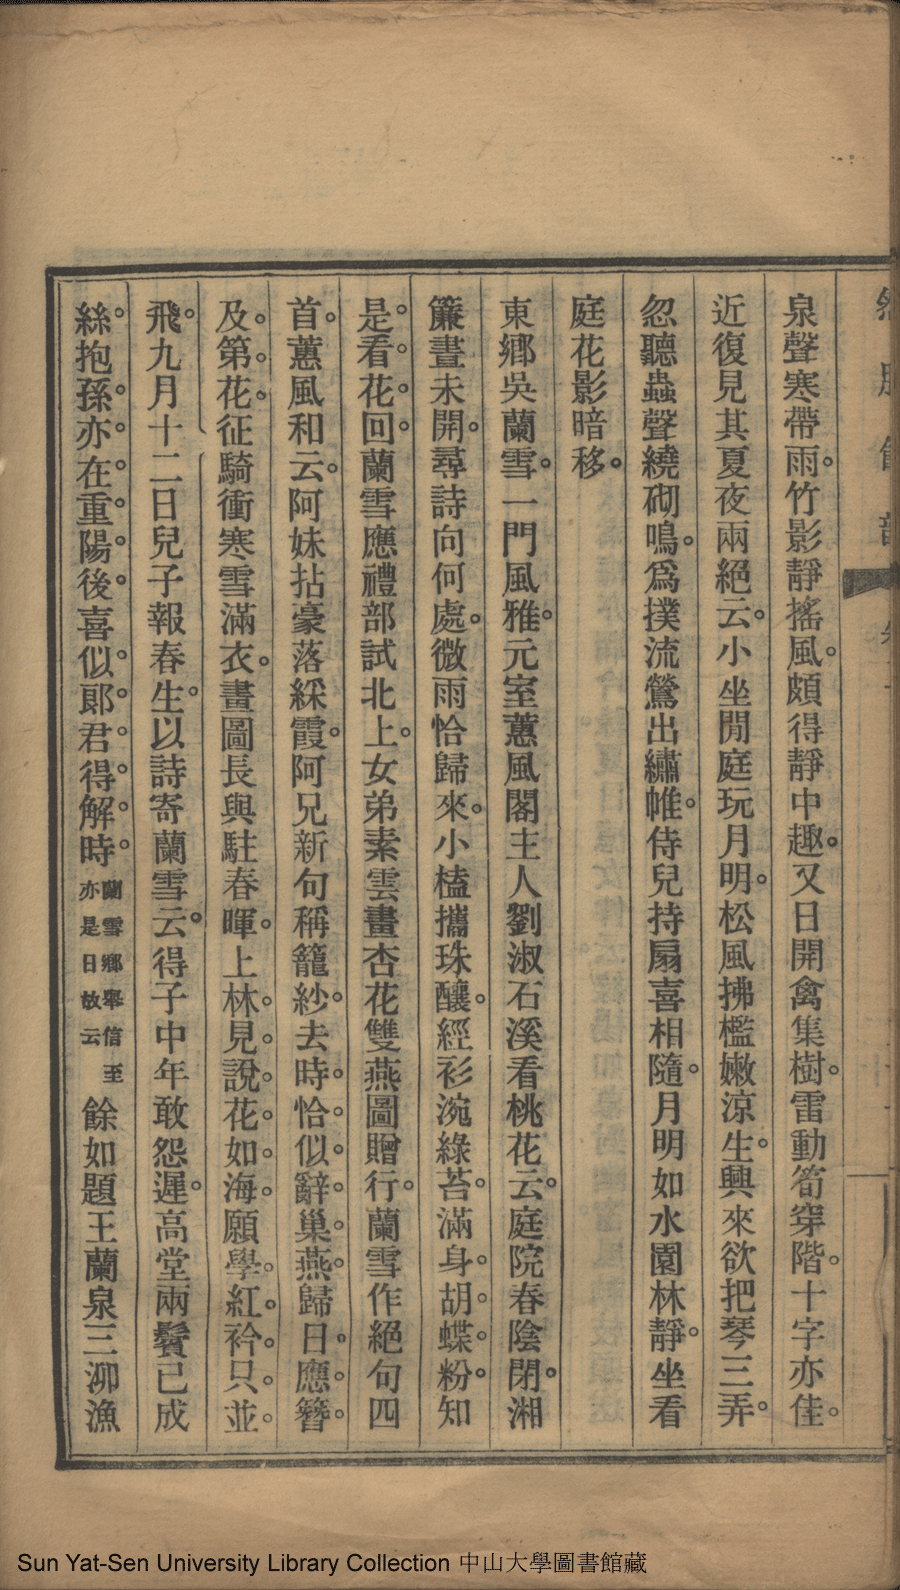 泉聲寒帶雨。竹影靜搖風。頗得靜中趣。又日開禽集樹。雷動筍穿階。十字亦佳。
近復見其夏夜兩絕云。小坐閒庭玩月明。松風拂檻嫩涼生。興來欲把琴三弄。
忽聽蟲聲繞砌鳴。爲撲流鶯出繡帷。侍兒持扇喜相隨。月明如水園林靜。坐看
庭花影暗移。
東鄉吳蘭雪。一門風雅。元室蕙風閣主人劉淑石溪看桃花云。庭院春陰閉。湘
簾晝未開。尋詩向何處。微雨恰歸來。小榼攜珠釀。經衫涴綠苔。滿身。胡。蝶。粉。知
是。看。花。回。蘭雪應禮部試北上。女弟素雲畫杏花雙燕圖贈行。蘭雪作絕句四
首。蕙風和云。阿妹拈豪落綵霞。阿兄新句稱籠紗。去時。恰。似。辭。巢。燕。歸日。應。簪。
及。第。花。征騎衝寒雪滿衣。畫圖長與駐春暉。上林。見。說。花。如。海。願學。紅。衿。只。並。
飛。九月十二日兒子報春生。以詩寄蘭雪云。得子中年敢怨遲。高堂兩鬢已成
絲。抱孫。亦。在。重。陽。後。喜似。郎。君。得。解。時。蘭雪鄉舉信至亦是日故云餘如題王蘭泉三泖漁
Sun Yat-Sen University Library Collection 中山大學圖書館藏